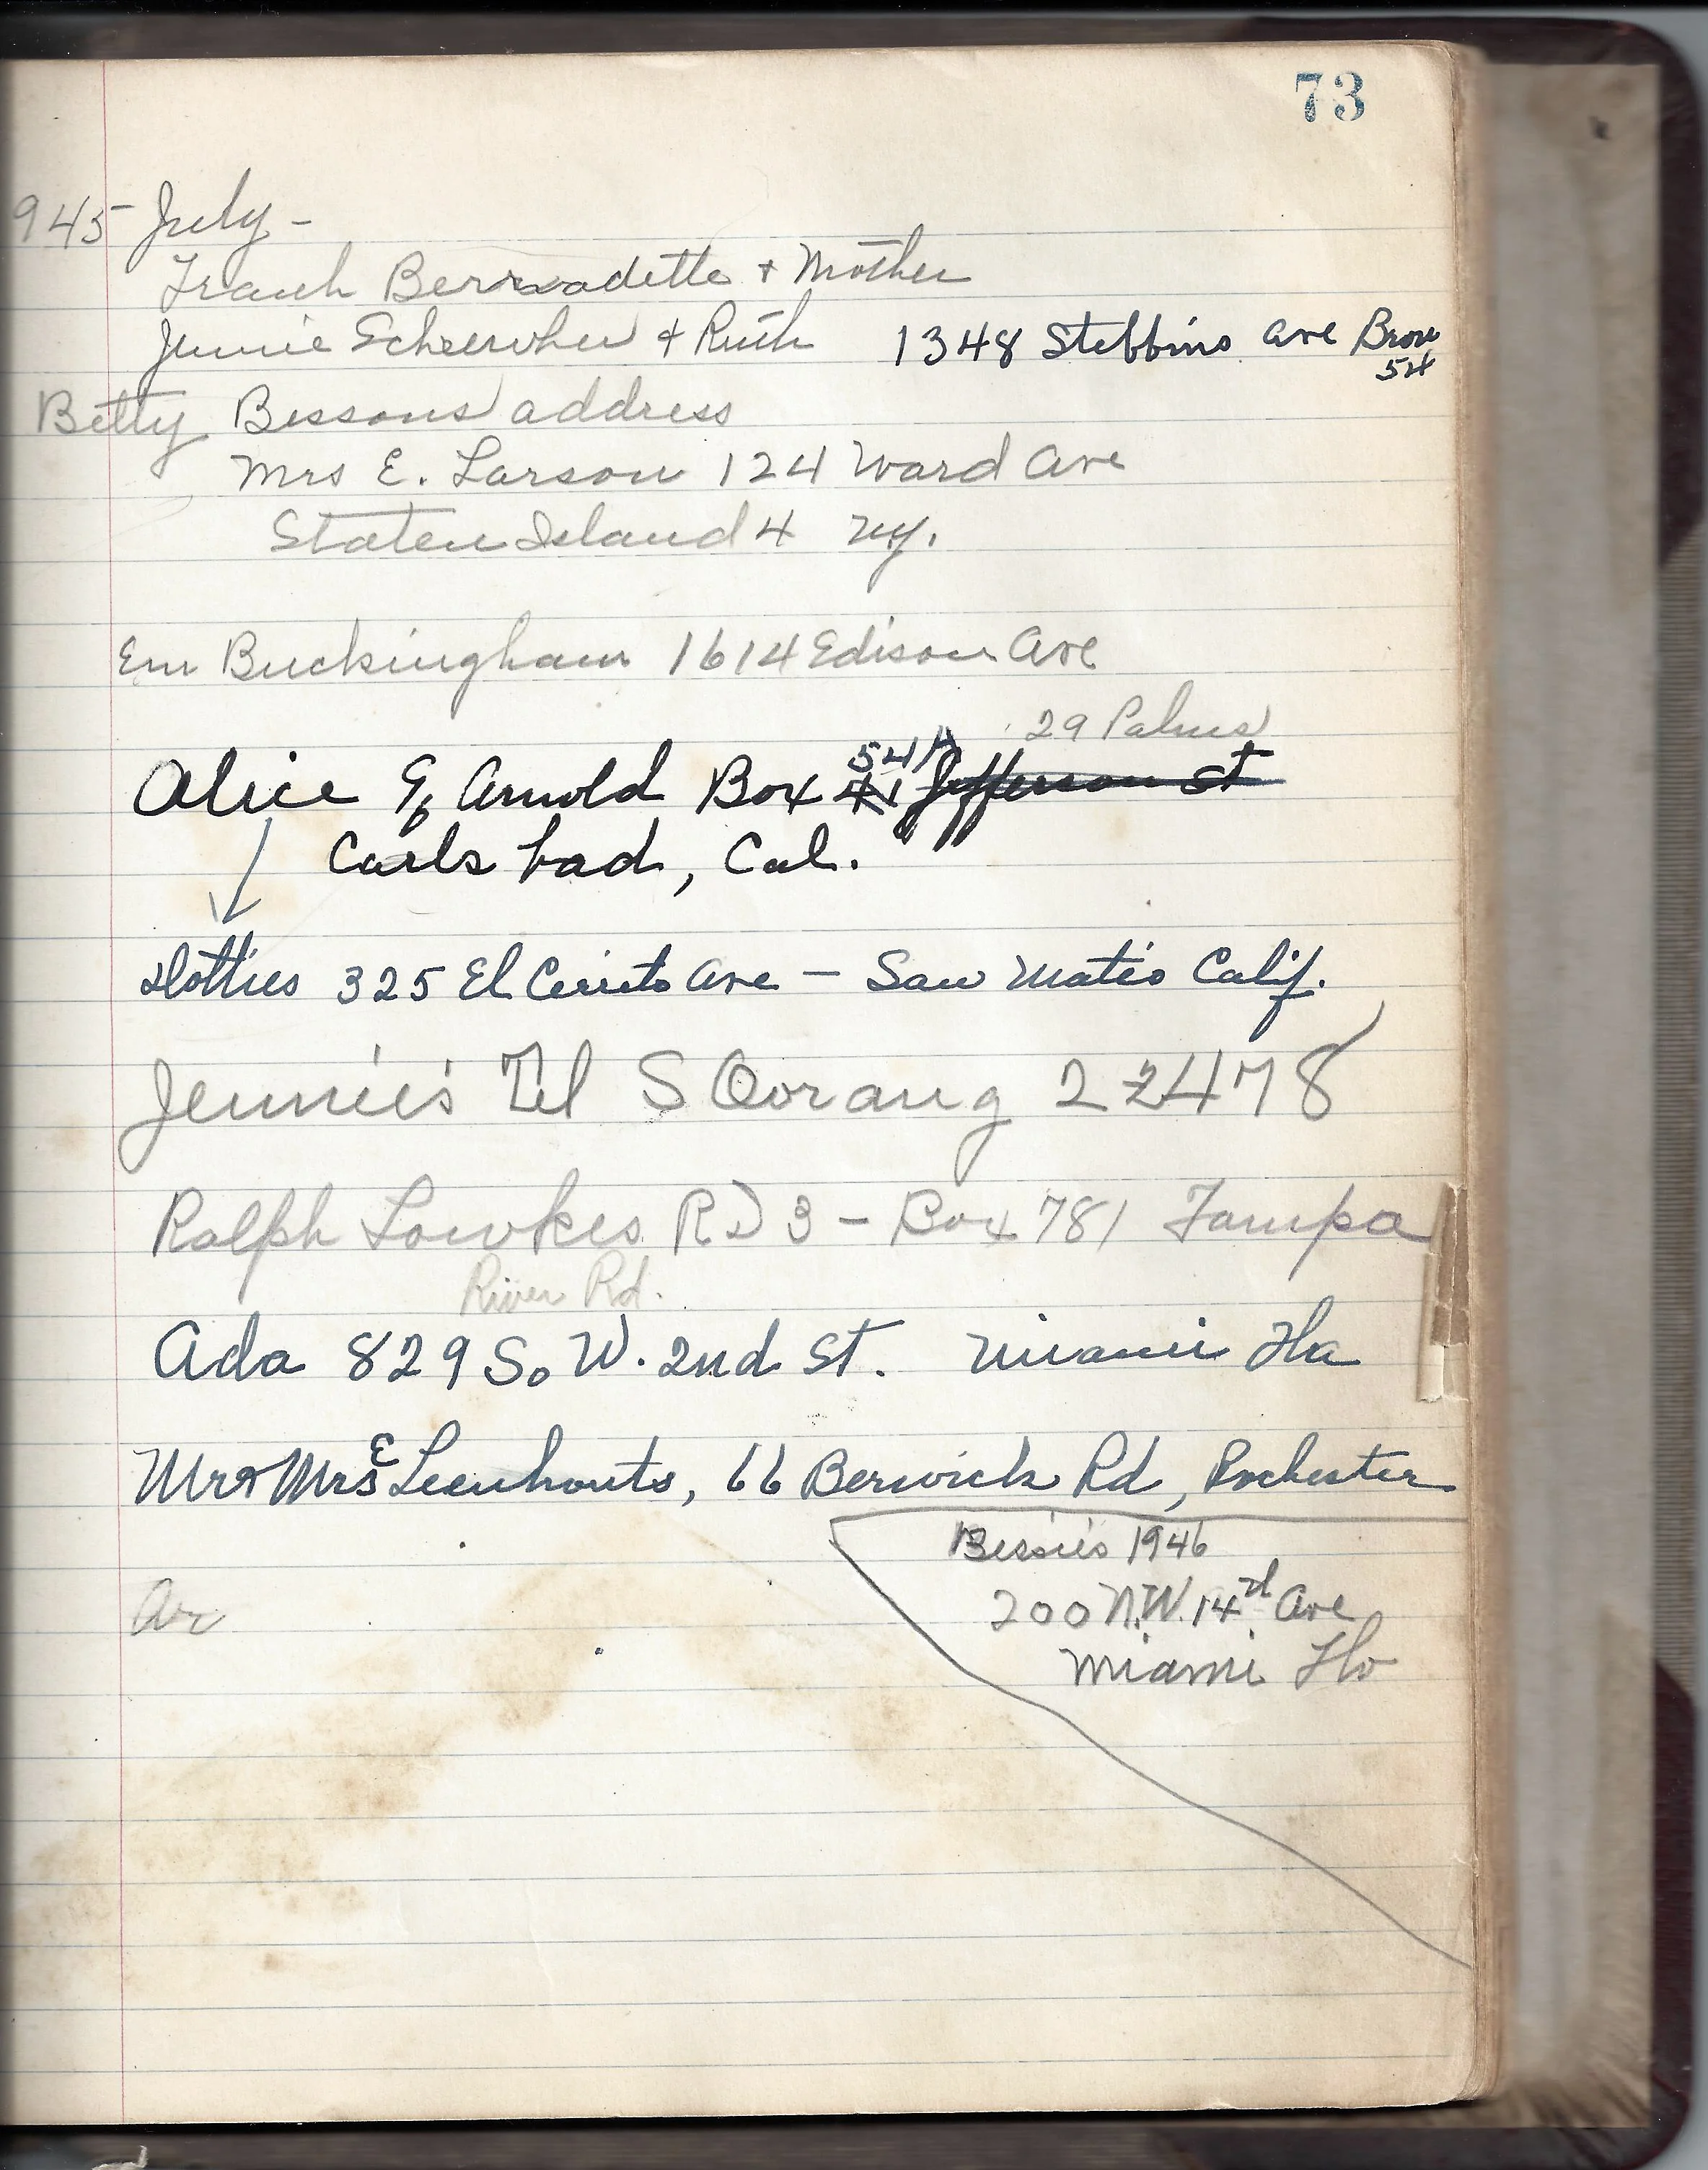 73
945 July -
Frank Bernadette + Mother
Jennie & Ruth 1348 Stebbins Ave Bronx
54
Betty Bessons address
Mrs E. Larson 124 Ward Ave
Staten Island 4 NY.
Em Buckingham 1614 Edison Ave
29 Palms
541
Alice & Arnold Box 41 Jefferson St
Carlsbad, Cal.
Dotties 325 El Cerrito Ave - San Mateo Calif.
Jennie's Tel S Oorang 22478
Ralph Lowkes RD 3 - Box 781 Tampa
River Rd.
Ada 829 So W. 2nd St. Miami Fla
Mr & Mrs E Leenhouts, 66 Berwick Rd, Rochester
Bessie's 1946
200 N.W. 14 Ave
Miami Flo